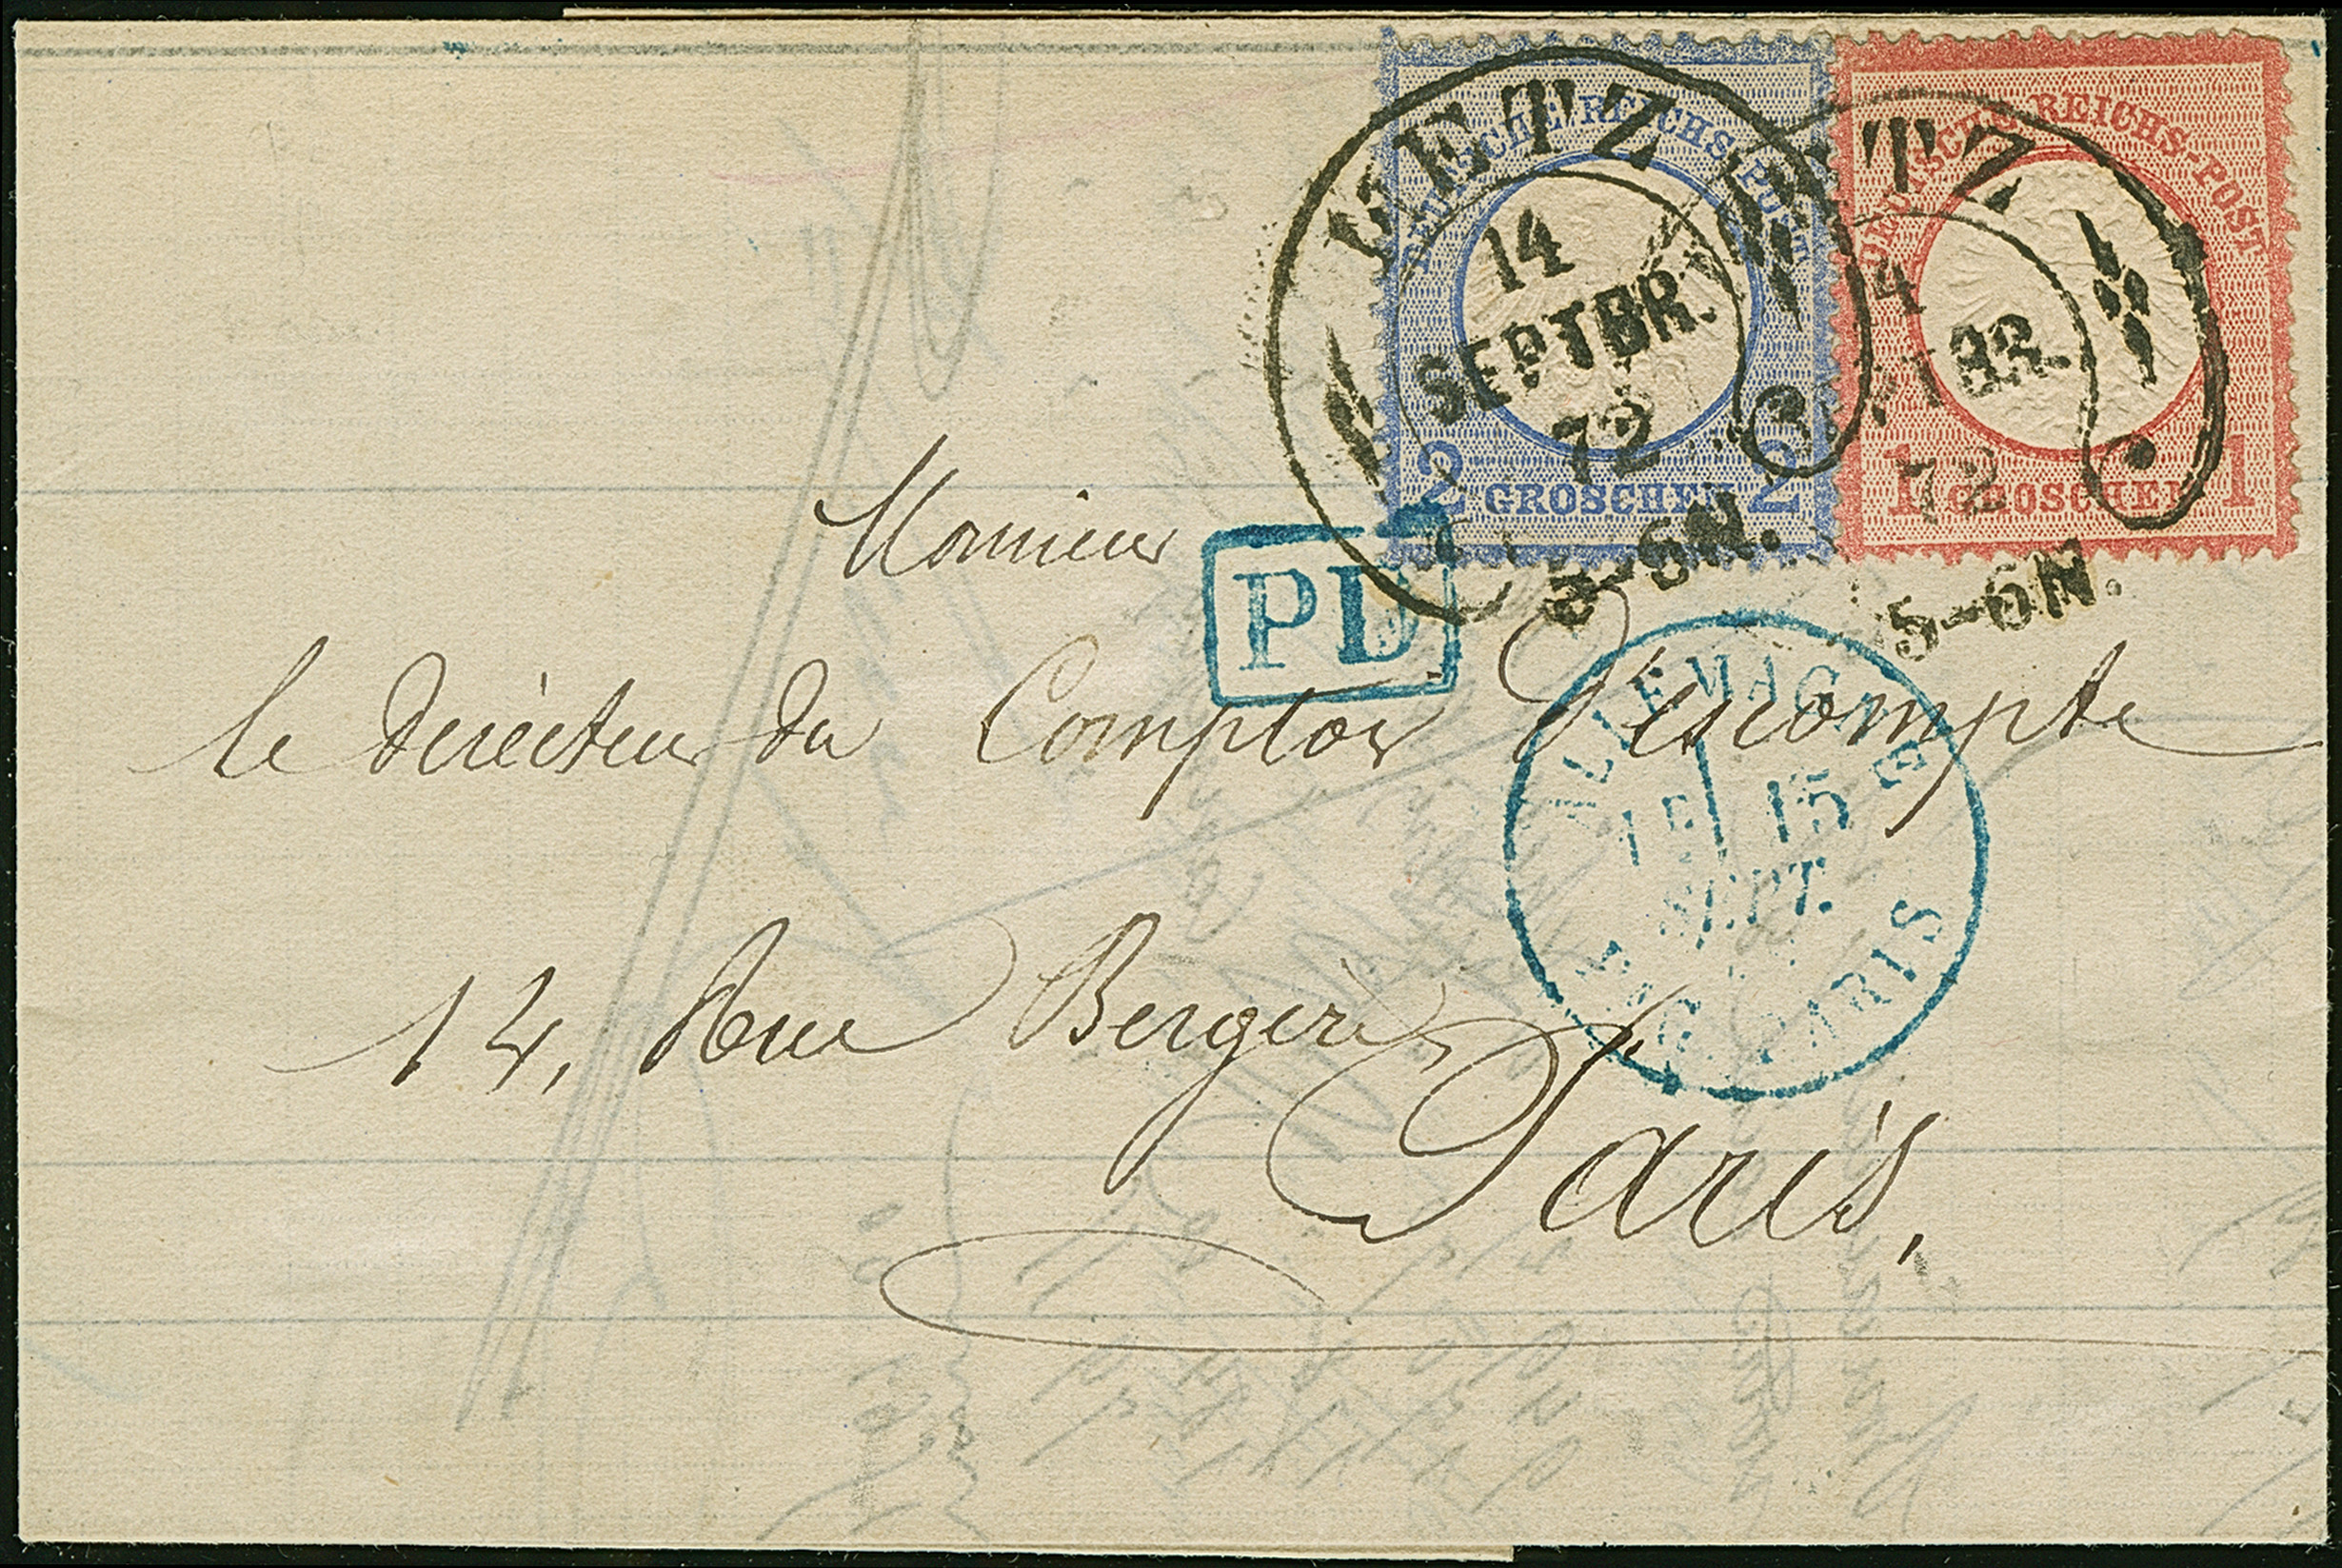 DEUTSCHE REICHS-POST
2 GROSCHEN 2
DEUTSCHE REICHS-POST
1 GROSCHEN 1
METZ
14
SEPTBR.
72
5-6N.
TZ
4
BR.
72
5-6N.
PD
ALLEMAGNE
15 SEPT.
PARIS
Monsieur
le directeur du Comptoir d'escompte
14, Rue Bergère
Paris.